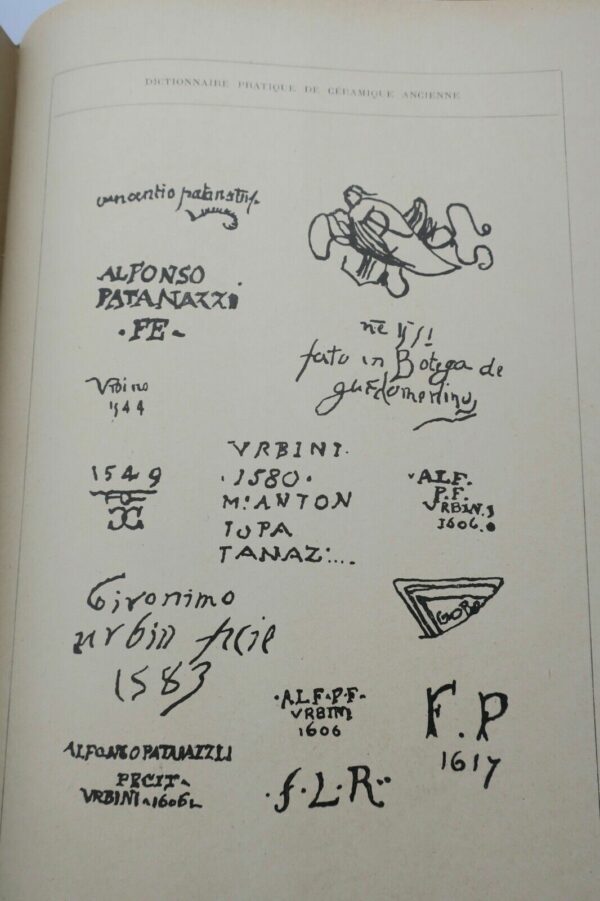 DICTIONNAIRE PRATIQUE DE CÉRAMIQUE ANCIENNE
ALFONSO
PATANAZZI
·FE~
nē
fato in Botega de
Vrbino
1544
1549
VRBINI·
·1580·
Mo ANTON
IO PA
TANAZ:....
·ALF·
P.F.
VRBINI
1606.
Gironimo
urbin fecie
1583
GORO
·ALF·P·F·
VRBINI
1606
F.P
1617
ALFONSO PATANAZZI
FECIT·
VRBINI·1606
·f·L·R··